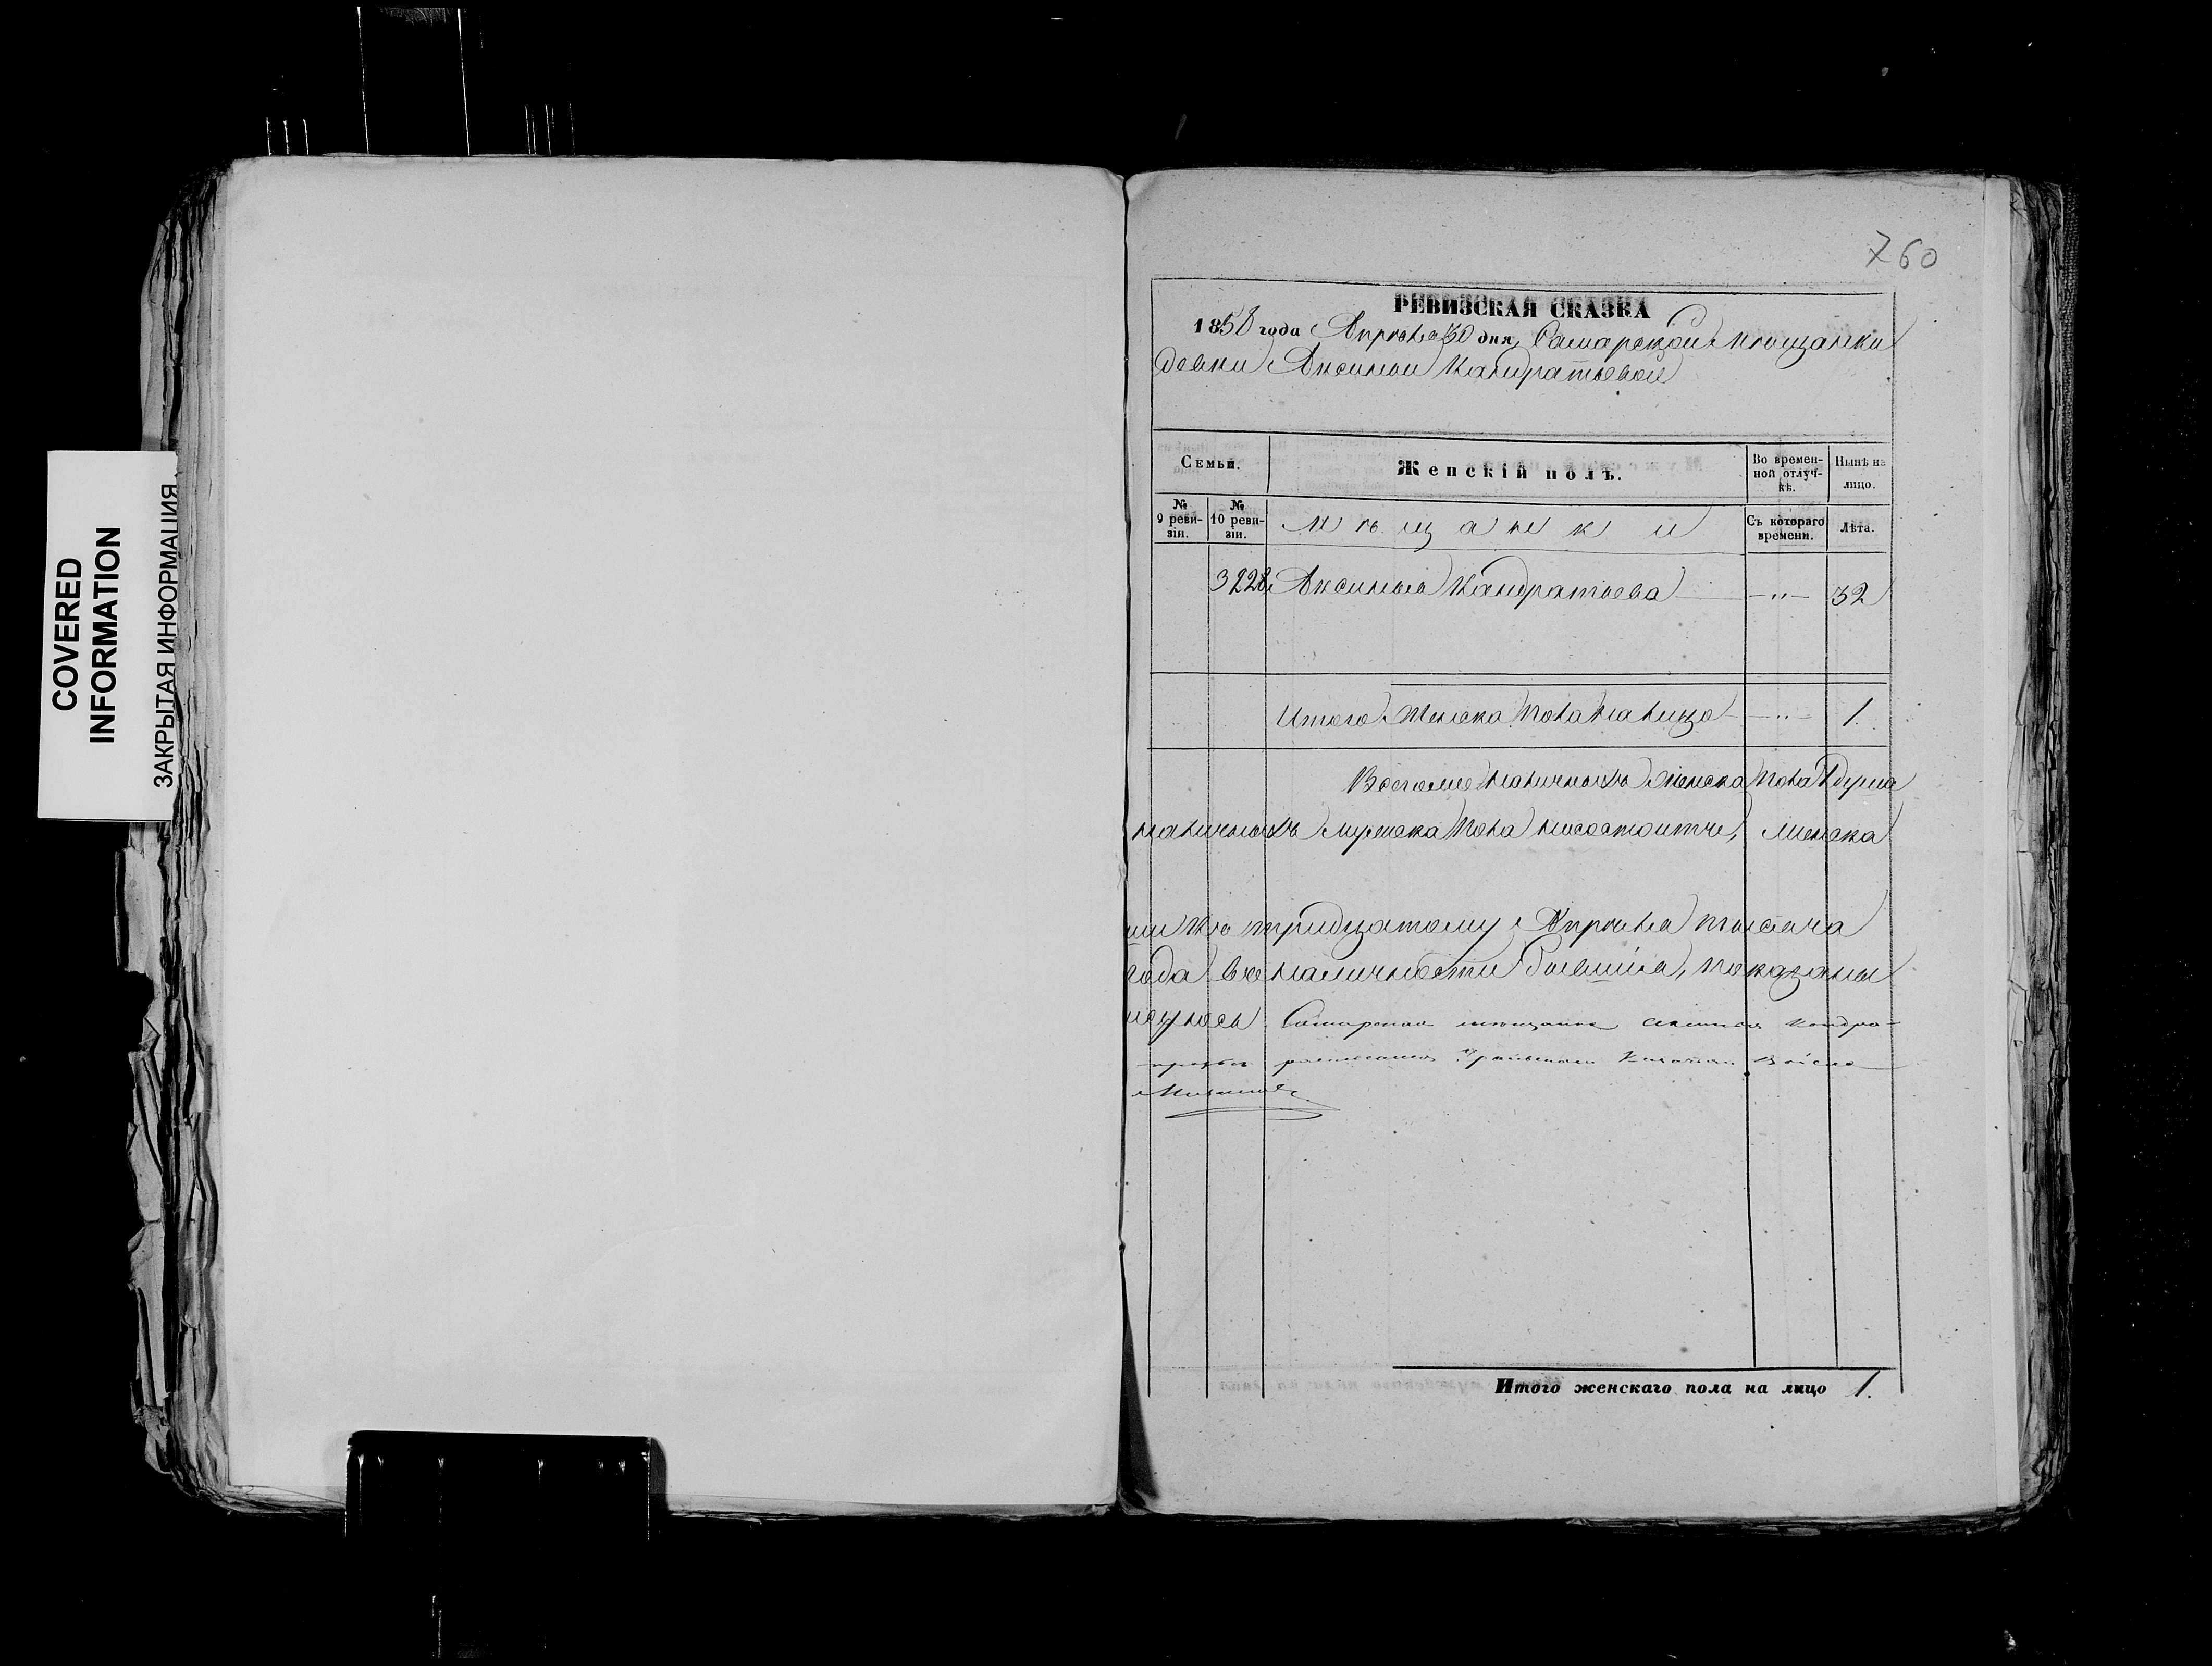 COVERED
INFORMATION
ЗАКРЫТАЯ ИНФОРМАЦИЯ
760
РЕВИЗСКАЯ СКАЗКА
1858 года Апреля 30 дня, Самарской мѣщанки
девки Аксиньи Кандратьевой
Семьи.
Женскій полъ.
Во времен-
ной отлуч-
кѣ.
Нынѣ на
лицо.
№
9 реви-
зіи.
№
10 реви-
зіи.
Мѣщанки
Съ котораго
времени.
Лѣта.
3228 Аксинья Кандратьева — „ — 32
Итого Женска Пола на лицо — „ — 1.
Всего же наличныхъ женска пола 1 душа
наличныхъ мужска пола несостоитъ, женска
тридцатому Апреля тысяча
года вне наличности бывшія, показаны
Самарская мещанка Кондра-
Итого женскаго пола на лицо 1.